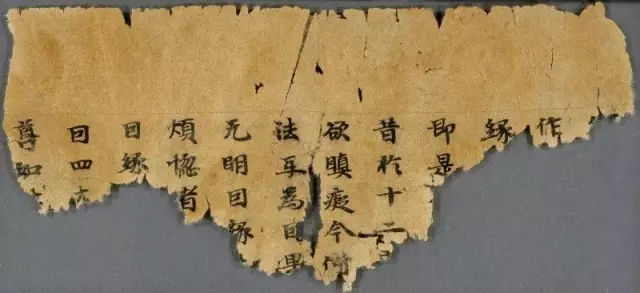 作
緣
即是
昔於十二
欲瞋癡今
法互為因果
无明因緣
煩惱者
因緣
因四
尊如